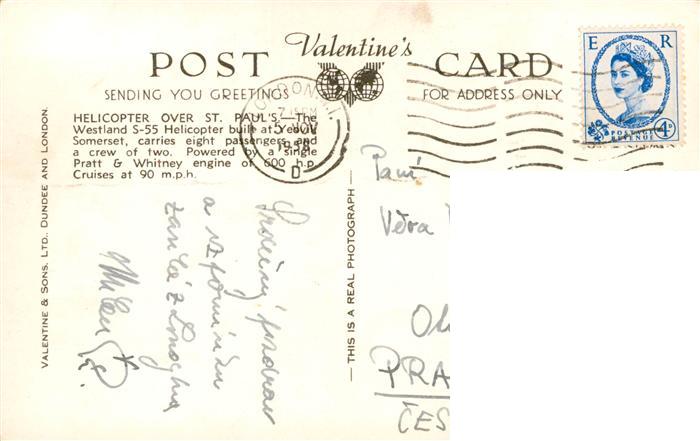 Valentine's
POST CARD
SENDING YOU GREETINGS
FOR ADDRESS ONLY
HELICOPTER OVER ST. PAUL'S.—The
Westland S-55 Helicopter built at Yeovil,
Somerset, carries eight passengers and
a crew of two. Powered by a single
Pratt & Whitney engine of 600 h.p.
Cruises at 90 m.p.h.
VALENTINE & SONS, LTD. DUNDEE AND LONDON.
— THIS IS A REAL PHOTOGRAPH —
LONDON
5 NOV
D
E R
POSTAGE
REVENUE
4D
Srdečný pozdrav
a vzpomínku
zasílá z Londýna
Milan
Paní
Věra
Ol
PRA
ČES